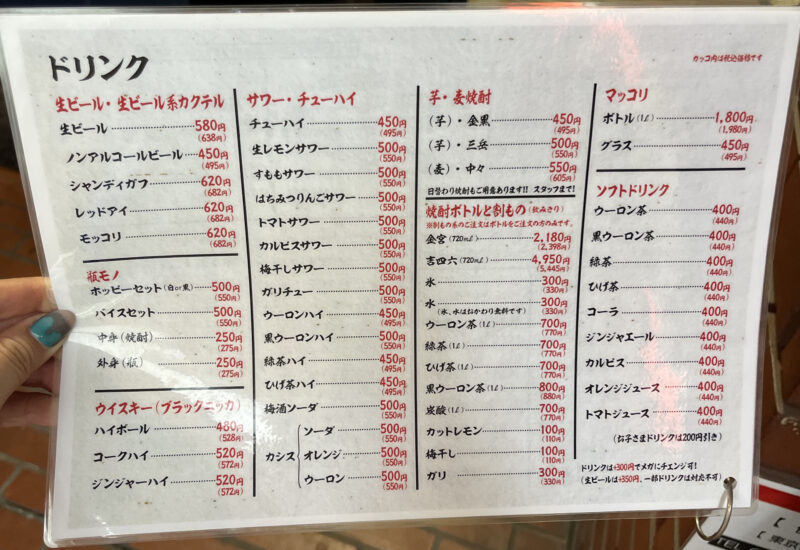 ドリンク
カッコ内は税込価格です
生ビール・生ビール系カクテル
生ビール 580円
(638円)
ノンアルコールビール 450円
(495円)
シャンディガフ 620円
(682円)
レッドアイ 620円
(682円)
モッコリ 620円
(682円)
瓶モノ
ホッピーセット(白or黒) 500円
(550円)
バイスセット 500円
(550円)
中身(焼酎) 250円
(275円)
外身(瓶) 250円
(275円)
ウイスキー(ブラックニッカ)
ハイボール 480円
(528円)
コークハイ 520円
(572円)
ジンジャーハイ 520円
(572円)
サワー・チューハイ
チューハイ 450円
(495円)
生レモンサワー 500円
(550円)
すももサワー 500円
(550円)
はちみつりんごサワー 500円
(550円)
トマトサワー 500円
(550円)
カルピスサワー 500円
(550円)
梅干しサワー 500円
(550円)
ガリチュー 500円
(550円)
ウーロンハイ 450円
(495円)
黒ウーロンハイ 500円
(550円)
緑茶ハイ 450円
(495円)
ひげ茶ハイ 450円
(495円)
梅酒ソーダ 500円
(550円)
カシス
ソーダ 500円
(550円)
オレンジ 500円
(550円)
ウーロン 500円
(550円)
芋・麦焼酎
(芋)・金黒 450円
(495円)
(芋)・三岳 500円
(550円)
(麦)・中々 550円
(605円)
日替わり焼酎もご用意あります!! スタッフまで!
焼酎ボトルと割もの(飲みきり)
※割もの系のご注文はボトルをご注文の方のみです。
金宮(720mℓ) 2,180円
(2,398円)
吉四六(720mℓ) 4,950円
(5,445円)
氷 300円
(330円)
水 300円
(氷、水はおかわり無料です) (330円)
ウーロン茶(1ℓ) 700円
(770円)
緑茶(1ℓ) 700円
(770円)
ひげ茶(1ℓ) 700円
(770円)
黒ウーロン茶(1ℓ) 800円
(880円)
炭酸(1ℓ) 700円
(770円)
カットレモン 100円
(110円)
梅干し 100円
(110円)
ガリ 300円
(330円)
マッコリ
ボトル(1ℓ) 1,800円
(1,980円)
グラス 450円
(495円)
ソフトドリンク
ウーロン茶 400円
(440円)
黒ウーロン茶 400円
(440円)
緑茶 400円
(440円)
ひげ茶 400円
(440円)
コーラ 400円
(440円)
ジンジャエール 400円
(440円)
カルピス 400円
(440円)
オレンジジュース 400円
(440円)
トマトジュース 400円
(440円)
(お子さまドリンクは200円引き)
ドリンクは+300円でメガにチェンジ可!
(生ビールは+350円、一部ドリンクは対応不可)
東京